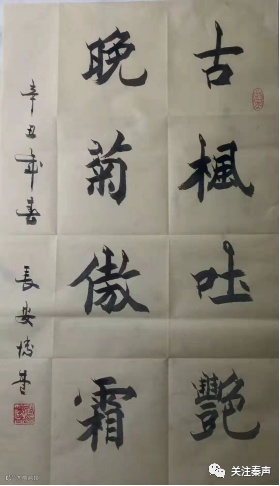 古楓吐艷
晚菊傲霜
辛丑年春
長安
关注秦声